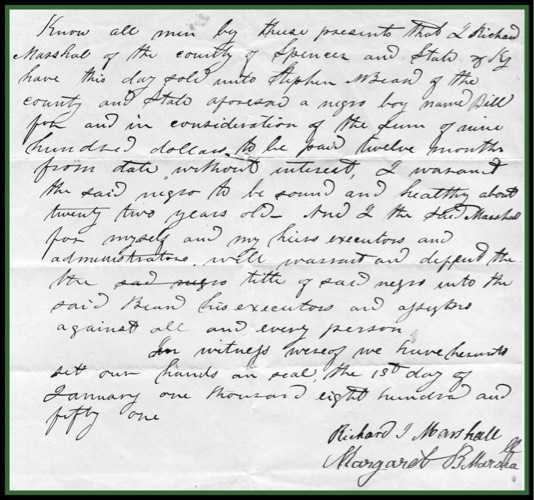 Know all men by these presents that I Richard
Marshall of the county of Spencer and State of Ky
have this day sold unto Stephen M Bean of the
county and State aforesad a negro boy name Bill
for and in consideration of the sum of nine
hundred dollars to be paid twelve months
from date without interest, I warant
the said negro to be sound and healthy about
twenty two years old - And I the said Marshall
for myself and my hiers executors and
administrators will warrant and deffend the
the sad negro title of said negro unto the
said Bean his executors and assigns
against all and every person
In witness wereof we have hereunto
set our hands an seal, the 1st day of
January one thousand eight hundred and
fifty one
Richard J Marshall
Margaret B Marshall